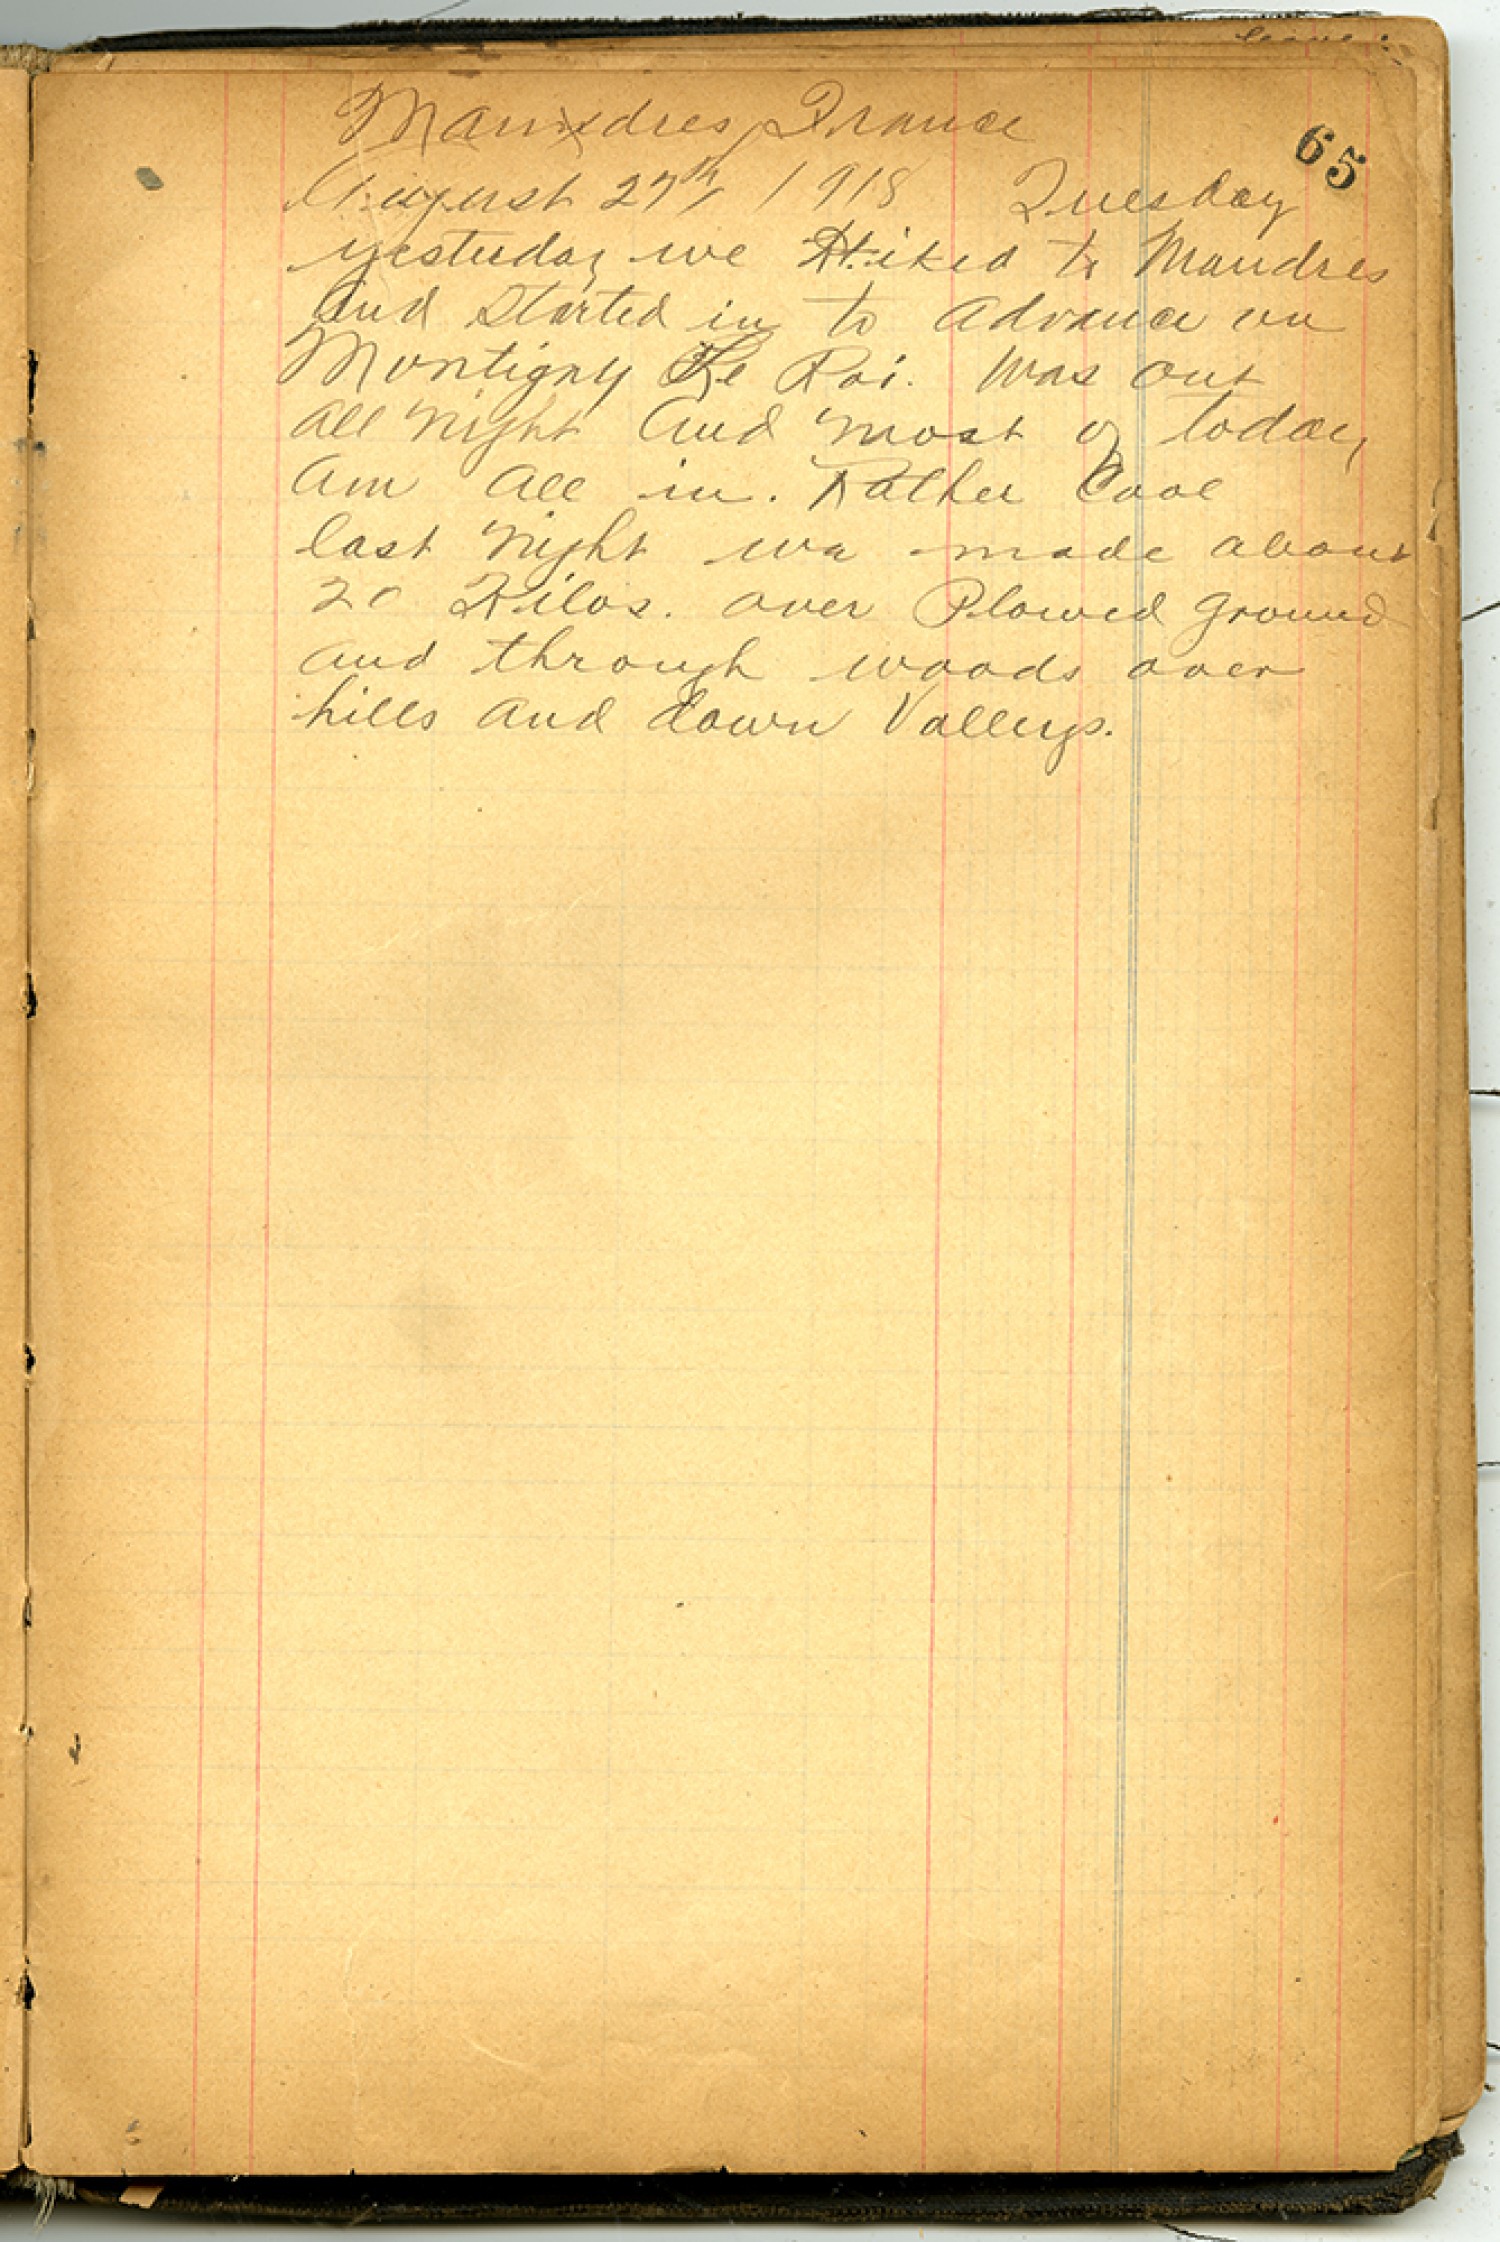 Mandres, France
65
August 27th, 1918 Tuesday
yesterday we Hiked to Mandres
and Started in to advance on
Montigny Le Roi. Was out
all night and most of today,
am all in. Rather Cool
last night we made about
20 Kilos. over Plowed ground
and through woods over
hills and down Valleys.